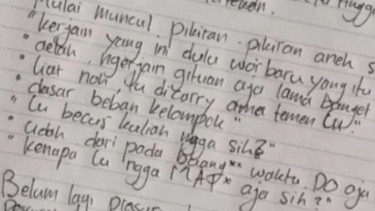 Mulai muncul pikiran-pikiran aneh s
"kerjain yang ini dulu woi baru yang itu
• aelah, ngerjain gituan aja lama banget
• liat noh, lu dicarry ama temen lu."
• dasar beban kelompok"
" Lu becus kuliah ngga sih?"
• udah dari pada buang** waktu DO aja
" kenapa lu ngga M*A*T* aja sih?"
Belum lagi